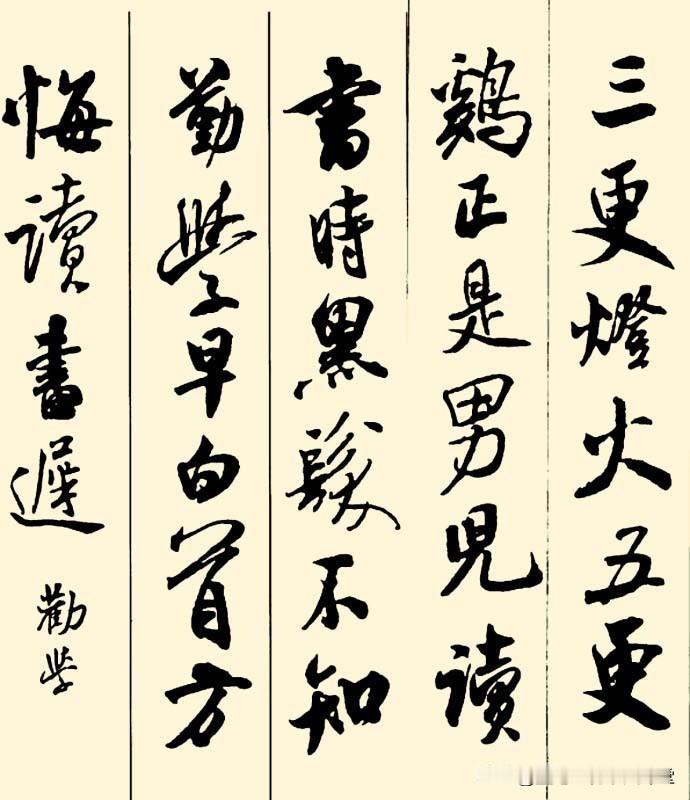 三更燈火五更
鷄正是男兒讀
書時黑髮不知
勤學早白首方
悔讀書遲
勸学